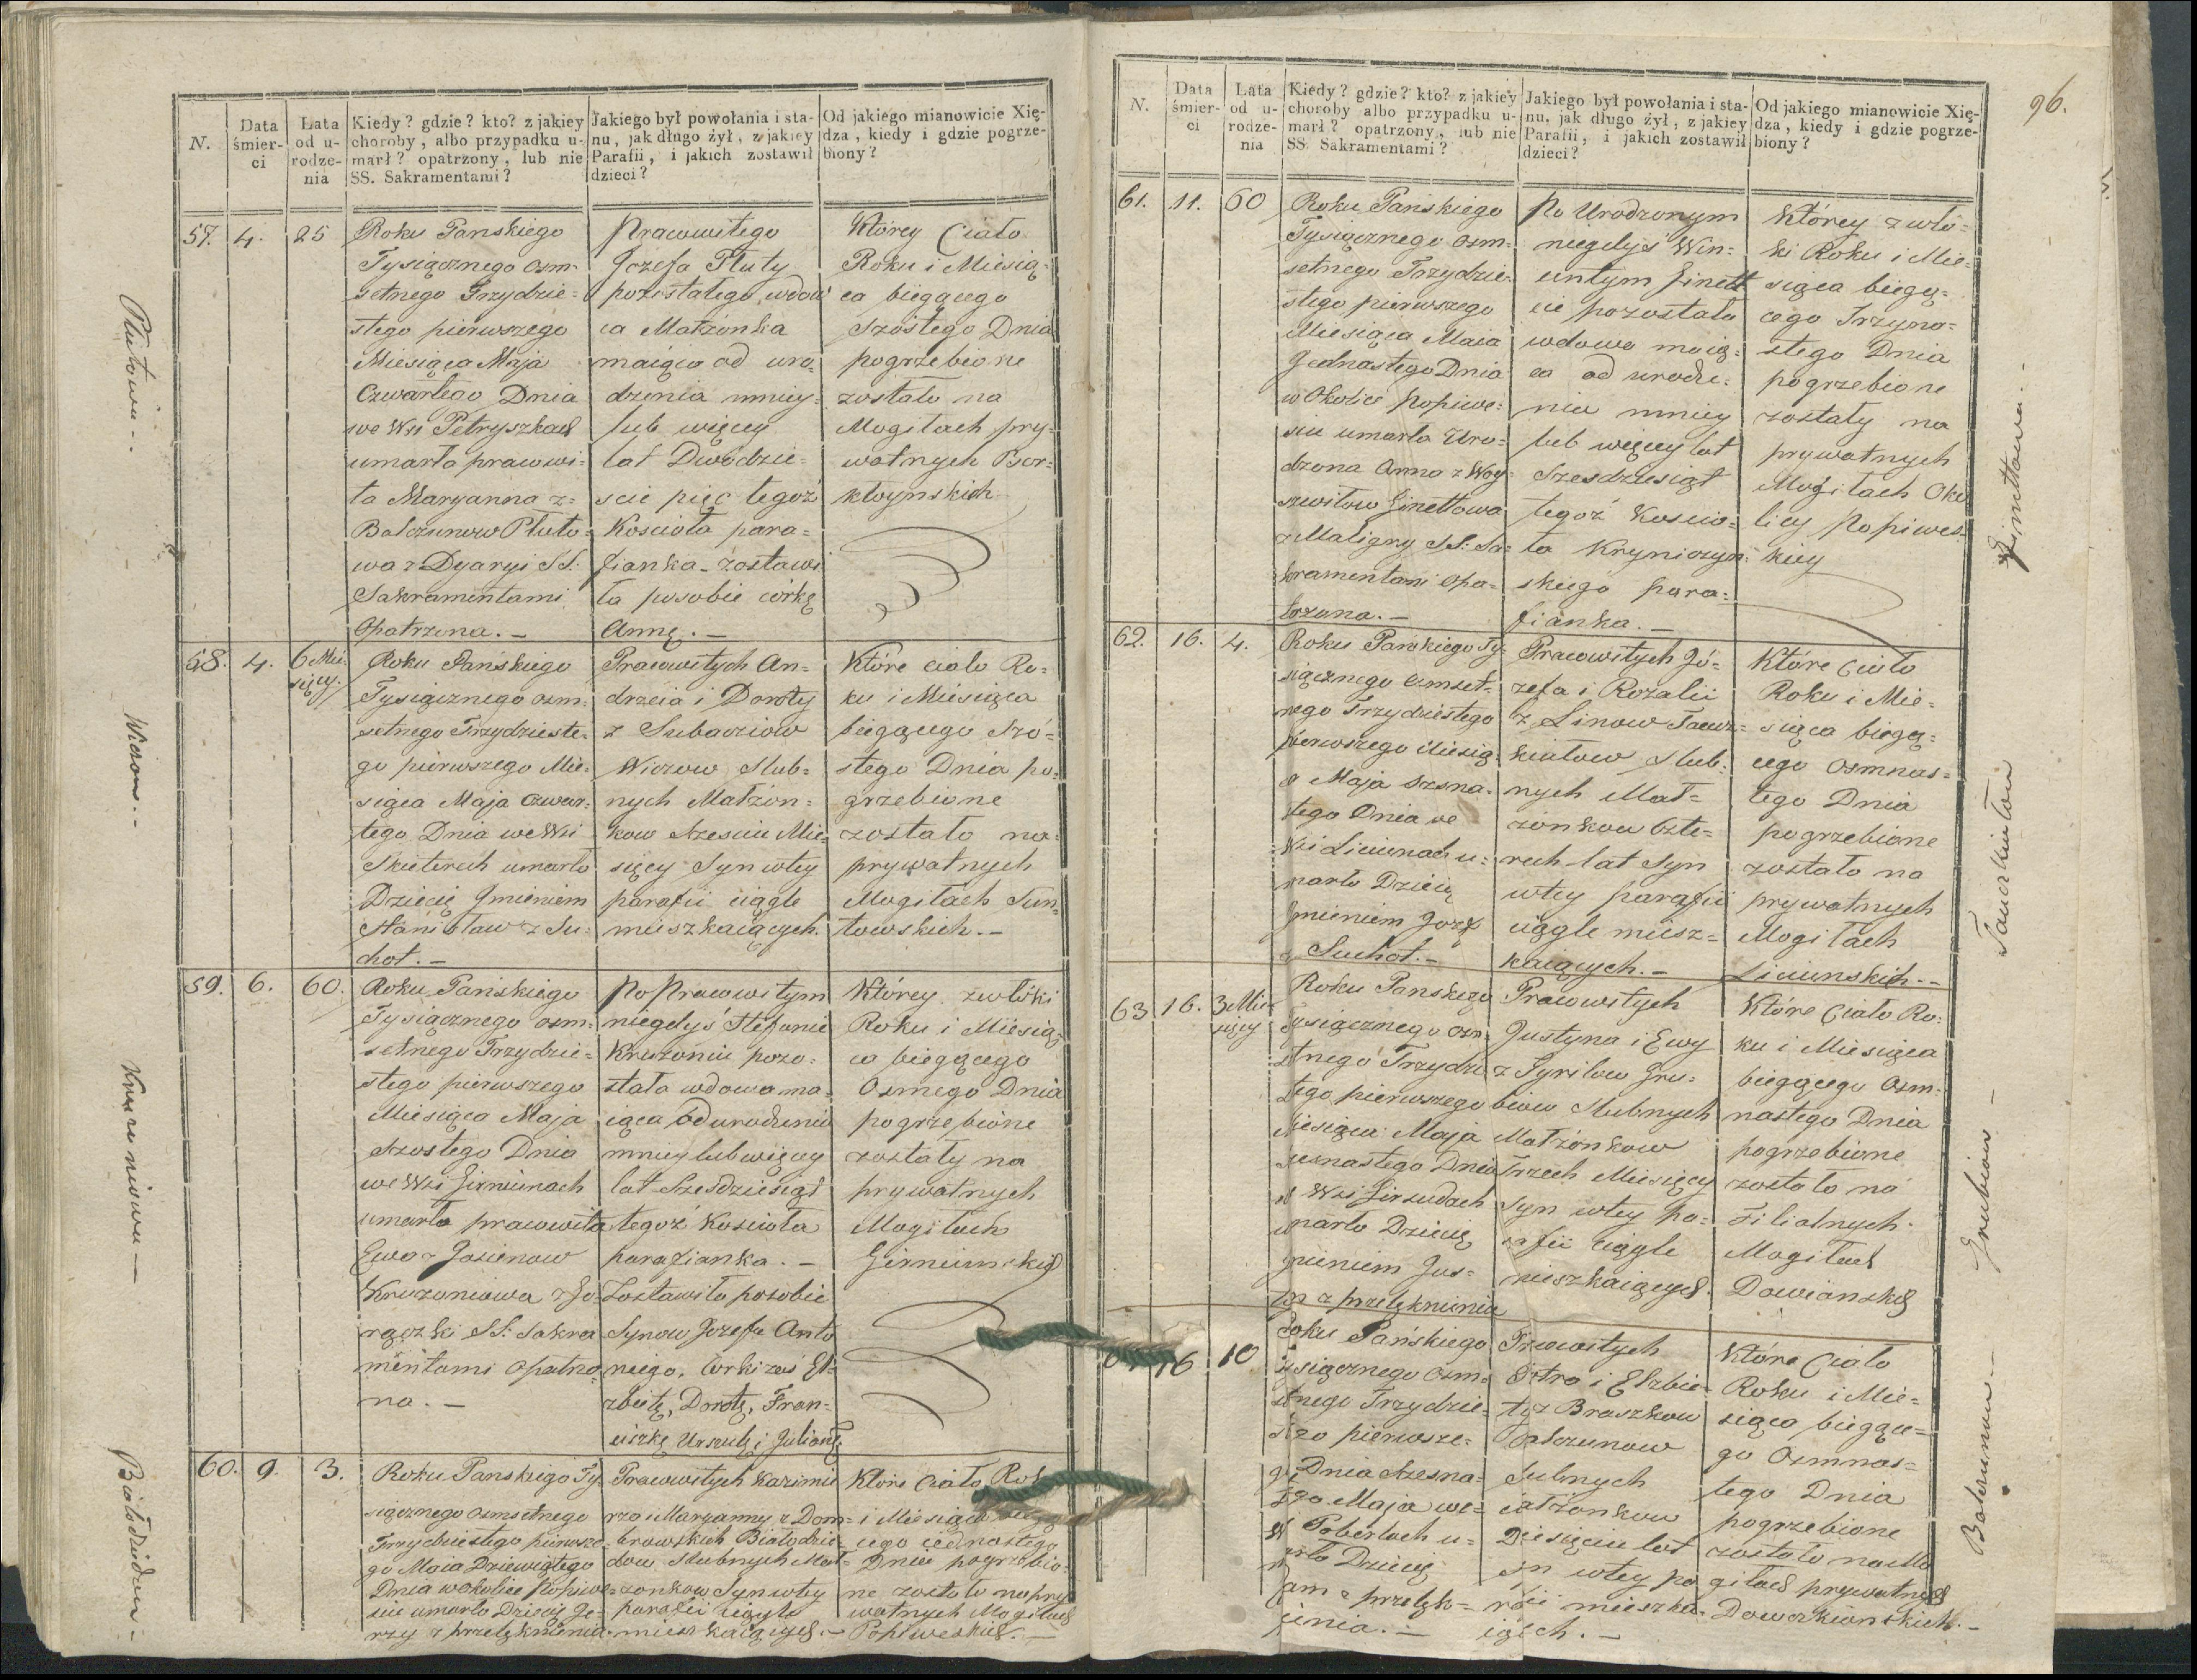 N.
Data
śmier-
ci
Lata
od u-
rodze-
nia
Kiedy? gdzie? kto? z jakiey
choroby, albo przypadku u-
marł? opatrzony, lub nie
SS. Sakramentami?
Jakiego był powołania i sta-
nu, jak długo żył, z jakiey
Parafii, i jakich zostawił
dzieci?
Od jakiego mianowicie Xię-
dza, kiedy i gdzie pogrze-
biony?
57.
4.
25
Roku Panskiego
Tysiącznego osm-
setnego Trzydzie=
stego pierwszego
Miesiąca Maja
Czwartego Dnia
we Wsi Petryszkach
umarła prawowi-
ta Maryanna z=
Balczunow Pluto-
wa z Dyaryi SS:
Sakramentami
Opatrzona. -
Prawowitego
Jozefa Pluty
pozostałego wdow
ca Małżonka
maiąca od uro-
dzenia mniey-
lub więcey
lat Dwódzie-
scie pięc tegoż
Kościoła para-
fianka - zostawi
ła posobie córkę
Annę. -
Którey Ciało
Roku i Miesią-
ca biegącego
Szóstego Dnia
pogrzebione
zostało na
Mogiłach pry-
watnych Bor-
ktoynskich
Plutowa. -
58.
4.
6 Mie-
sięcy.
Roku Pańskiego
Tysiącznego osm-
setnego Trzydzieste-
go pierwszego Mie-
siąca Maja czwar-
tego Dnia we Wsi
Skuterach umarło
Dziecię Jmieniem
Stanisław z Su-
chot. -
Prawowitych An-
drzeia i Doroty
z Subaczów
Wiczow Slub-
nych Małżon=
kow Sześciu Mie-
sięcy Syn wtey
parafii ciągle
mieszkaiących.
Które ciało Ro-
ku i Miesiąca
biegącego Szó=
stego Dnia po-
grzebione
zostało na
prywatnych
Mogiłach Sun-
towskich. -
Wiczow. -
59.
6.
60.
Roku Pańskiego
Tysiącznego osm-
setnego Trzydzie=
stego pierwszego
Miesiąca Maja
Szostego Dnia
we Wsi Girniunach
umarła prawowita
Ewa z Jasienow
Kruzoniowa z Go-
rączki SS: Sakra
mentami opatrzo
na. -
Po Prawowitym
niegdyś Stefanie
Kruzoniu pozo-
stała wdowa ma-
iąca od urodzenia
mniey lub więcey
lat Sześdziesiąt
tegoż Kościoła
parafianka. -
Zostawiła posobie
Synow Jozefa Anto
niego, Córki zaś El-
zbietę, Dorotę, Fran-
ciszkę Urszulę i Juliannę
Którey zwłóki
Roku i Miesią-
ca biegącego
Osmego Dnia
pogrzebione
zostały na
prywatnych
Mogiłach
Girniunskich
Kruzoniowa -
60.
9.
3.
Roku Panskiego Ty-
siącznego osmsetnego
Trzydziestego pierwsze-
go Maia Dziewiątego
Dnia w okolice Popiwe-
siu umarło Dziecię Je-
rzy z przelęknienia
Prawowitych Kazimie
rza i Maryanny z Dom-
browskich Białodzie-
dow Slubnych Mał-
zonkow Syn wtey
parafii ciągle
mieszkaiących. -
Które Ciało Roku
i Miesiąca
cego iednastego
Dnia pogrzebio-
ne zostało na pry
watnych Mogiłach
Popiweskich. -
96.
N.
Data
śmier-
ci
Lata
od u-
rodze-
nia
Kiedy? gdzie? kto? z jakiey
choroby albo przypadku u-
marł? opatrzony, lub nie
SS. Sakramentami?
Jakiego był powołania i sta-
nu, jak długo żył, z jakiey
Parafii, i jakich zostawił
dzieci?
Od jakiego mianowicie Xię-
dza, kiedy i gdzie pogrze-
biony?
61.
11.
60
Roku Pańskiego
Tysiącznego osm-
setnego Trzydzie-
stego pierwszego
Miesiąca Maia
Jednastego Dnia
w Okolice Popiwe-
siu umarła Uro-
dzona Anna z Woy-
szwiłow Ginettowa
z Maligny SS: Sa-
kramentami opa-
trzona. -
Po Urodzonym
niegdyś Win-
centym Ginett
cie pozostała
wdowa maią-
ca od urodze-
nia mniey
lub więcey lat
Szesdziesiąt
tegoż Koscio-
ła Kryniczyn-
skiego para-
fianka. -
Którey zwło-
ki Roku i Mie-
siąca biegą-
cego Trzyna-
stego Dnia
pogrzebione
zostały na
prywatnych
Mogiłach Oko
licy Popiwes-
kiey
Ginettowa. -
62.
16.
4.
Roku Panskiego Ty-
siącznego osmset-
nego Trzydziestego
pierwszego Miesią-
a Maja szesna-
stego Dnia we
Wsi Liciunach u-
marło Dziecię
Jmieniem Jozef
z Suchot. -
Prawowitych Jó-
zefa i Rozalii
z Linow
Slub-
nych Mał-
zonkow Czte-
rech lat Syn
wtey parafii
ciągle miesz-
kaiących. -
Które Ciało
Roku i Mie-
siąca biegą-
cego Osmnas-
tego Dnia
pogrzebione
zostało na
prywatnych
Mogiłach
Liciunskich. -
63
16.
3 Mie-
sięcy
Roku Panskiego
Tysiącznego osm-
setnego Trzydzie
stego pierwszego
Miesiąca Maja
szesnastego Dnia
Wsi Girsudach
umarło Dziecię
Jmieniem Jus-
tyn z przelęknienia
Prawowitych
Justyna i Ewy
z Gyrilow Gru-
biow Slubnych
Małżonkow
Trzech Miesięcy
Syn wtey pa-
rafii ciągle
mieszkaiących.
Które Ciało Ro-
ku i Miesiąca
biegącego Osm-
nastego Dnia
pogrzebione
zostało na
Filialnych
Mogiłach
Dowianskich
Grubiow -
16
10
Roku Pańskiego
Tysiącznego Osm-
setnego Trzydzie-
stego pierwsze-
go Dnia Szesna-
stego Maja we-
Wsi Poberlach u-
marło Dziecię
Adam z przelęk-
nienia. -
Prawowitych
Piotra i Elzbie-
ty z Braszkow
Balczunow
Slubnych
Małżonkow
Dziesięciu lat
Syn wtey pa
rafii mieszka-
iących. -
Które Ciało
Roku i Mie-
siąca biegące-
go Osmnas-
tego Dnia
pogrzebione
zostało na Mo
giłach prywatnych
Balczunow. -